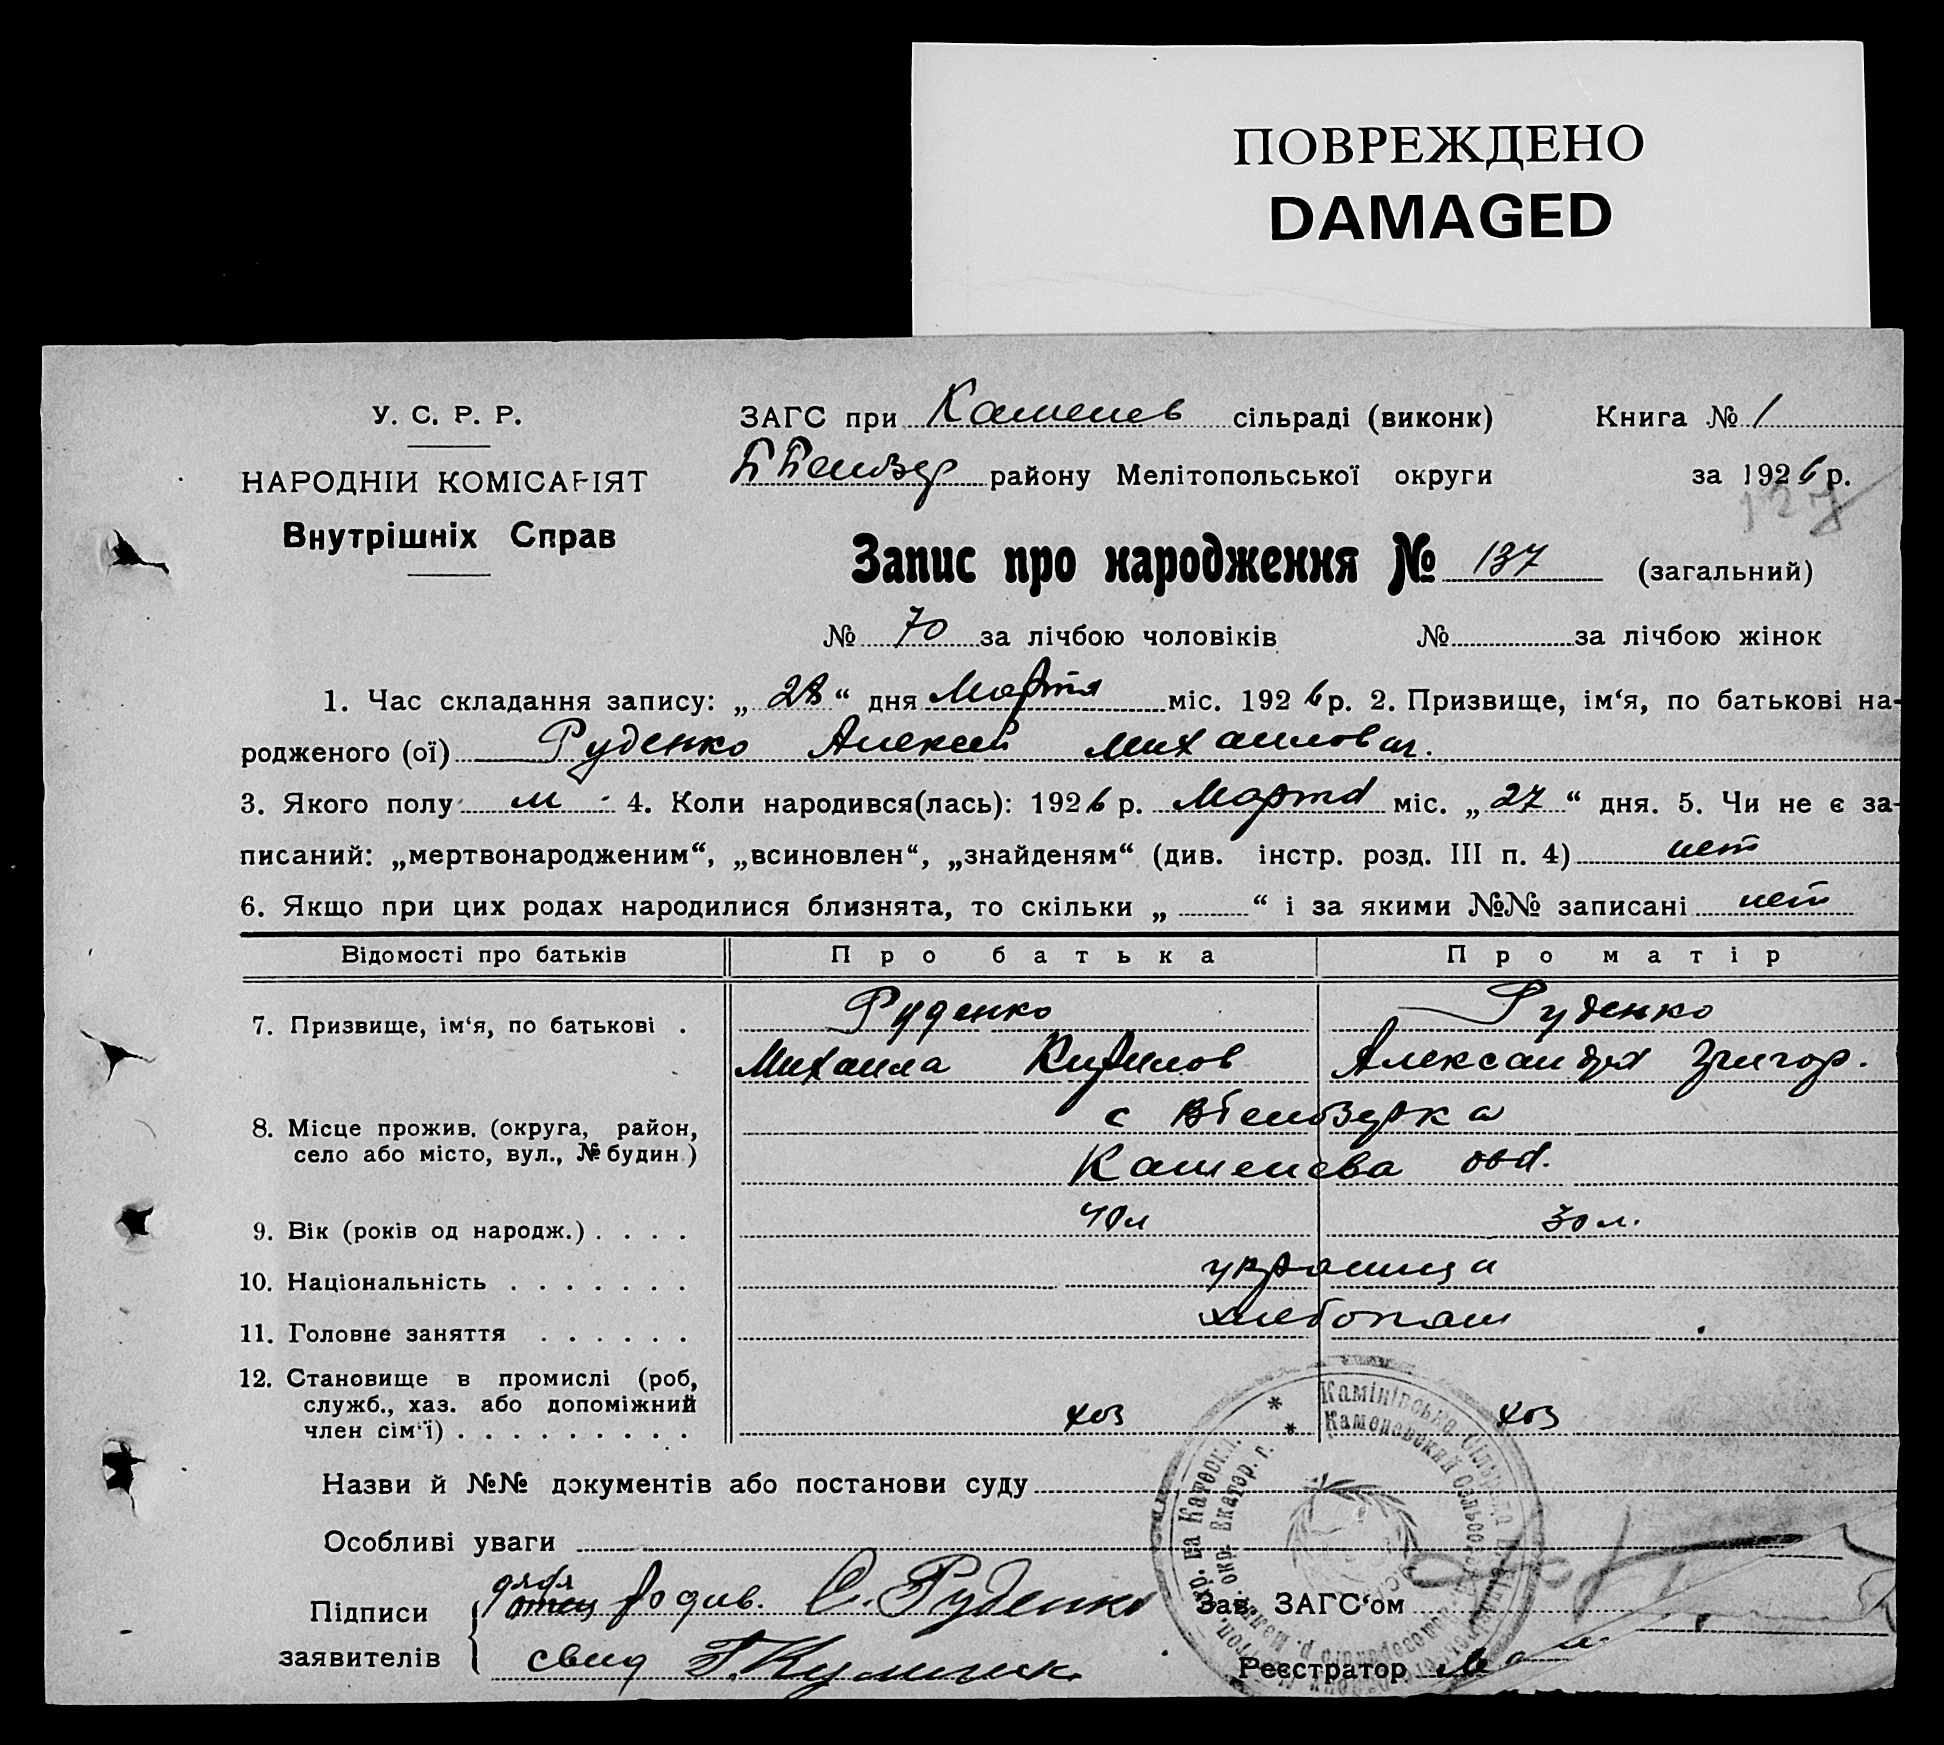 ПОВРЕЖДЕНО
DAMAGED
У. С. Р. Р.
НАРОДНІЙ КОМІСАРІЯТ
Внутрішніх Справ
ЗАГС при Каменев сільраді (виконк) Книга № 1
району Мелітопольської округи за 1926 р.
137
Запис про народження № 137 (загальний)
№ 70 за лічбою чоловіків № за лічбою жінок
1. Час складання запису: „ 28 “ дня Марта міс. 1926 р. 2. Призвище, ім‘я, по батькові на-
родженого (ої) Руденко Алексей Михаилович.
3. Якого полу м 4. Коли народився(лась): 1926 р. Марта міс. „ 27 “ дня. 5. Чи не є за-
писаний: „мертвонародженим“, „всиновлен“, „знайденям“ (див. інстр. розд. III п. 4) нет
6. Якщо при цих родах народилися близнята, то скільки „ “ і за якими №№ записані нет
Відомості про батьків Про батька Про матір
7. Призвище, ім‘я, по батькові . Руденко Руденко
Михаила Кирилов Александра Григор.
8. Місце прожив. (округа, район, с
село або місто, вул., № будин.) Каменева
9. Вік (років од народж.) . . . . 40 л 30 л.
10. Національність . . . . . . . украинца
11. Головне заняття . . . . . . хлебопаш
12. Становище в промислі (роб,
служб., хаз. або допоміжний
член сім‘ї) . . . . . . . . . хоз хоз
Камінівська Сільрада
Каменевский Сельсовет
Назви й №№ документів або постанови суду
Особливі уваги
дядя
Підписи отец родив. С. Руденко Зав. ЗАГС‘ом
заявителів свид Реєстратор